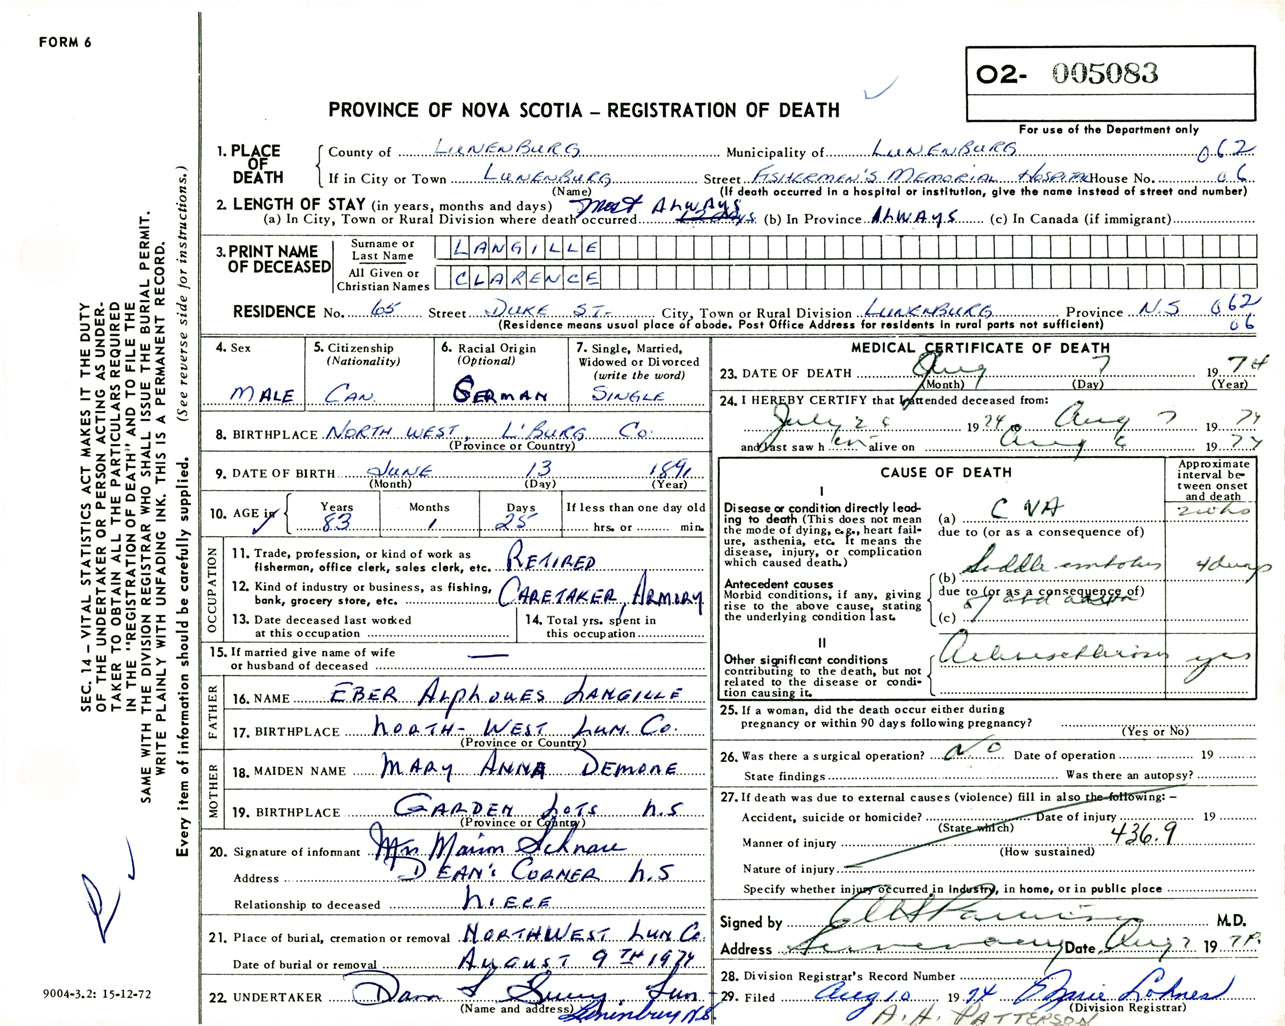 FORM 6
O2- 005083
PROVINCE OF NOVA SCOTIA – REGISTRATION OF DEATH
For use of the Department only
1. PLACE OF DEATH
County of LUNENBURG Municipality of LUNENBURG 062
If in City or Town LUNENBURG Street FISHERMEN'S MEMORIAL HOSPITAL House No. 06
(Name) (If death occurred in a hospital or institution, give the name instead of street and number)
2. LENGTH OF STAY (in years, months and days) Most ALWAYS
(a) In City, Town or Rural Division where death occurred days (b) In Province ALWAYS (c) In Canada (if immigrant)
3. PRINT NAME OF DECEASED
Surname or Last Name LANGILLE
All Given or Christian Names CLARENCE
RESIDENCE No. 65 Street DUKE ST. City, Town or Rural Division LUNENBURG Province N.S 062
(Residence means usual place of abode. Post Office Address for residents in rural parts not sufficient) 06
4. Sex
MALE
5. Citizenship
(Nationality)
CAN.
6. Racial Origin
(Optional)
GERMAN
7. Single, Married,
Widowed or Divorced
(write the word)
SINGLE
8. BIRTHPLACE NORTH WEST, L'BURG Co.
(Province or Country)
9. DATE OF BIRTH JUNE 13 1891
(Month) (Day) (Year)
10. AGE in
Years Months Days If less than one day old
83 1 25 hrs. or min.
OCCUPATION
11. Trade, profession, or kind of work as
fisherman, office clerk, sales clerk, etc. RETIRED
12. Kind of industry or business, as fishing,
bank, grocery store, etc. CARETAKER, ARMORY
13. Date deceased last worked
at this occupation
14. Total yrs. spent in
this occupation
15. If married give name of wife
or husband of deceased —
FATHER
16. NAME EBER ALPHONES LANGILLE
17. BIRTHPLACE NORTH-WEST LUN. Co.
(Province or Country)
MOTHER
18. MAIDEN NAME MARY ANNA DEMONE
19. BIRTHPLACE GARDEN LOTS N.S
(Province or Country)
20. Signature of informant Mrs Schnare
Address DEAN'S CORNER N.S
Relationship to deceased NIECE
21. Place of burial, cremation or removal NORTHWEST LUN Co.
Date of burial or removal AUGUST 9TH 1974
22. UNDERTAKER
(Name and address) Lunenburg N.S.
MEDICAL CERTIFICATE OF DEATH
23. DATE OF DEATH Aug 7 1974
(Month) (Day) (Year)
24. I HEREBY CERTIFY that I attended deceased from:
July 26 1974 Aug 7 1974
and last saw h im alive on Aug 6 1974
CAUSE OF DEATH
Approximate interval between onset and death
I
Disease or condition directly leading to death (This does not mean the mode of dying, e.g., heart failure, asthenia, etc. It means the disease, injury, or complication which caused death.)
(a) CVA
due to (or as a consequence of)
Antecedent causes
Morbid conditions, if any, giving rise to the above cause, stating the underlying condition last.
(b) Saddle embolus 4 days
due to (or as a consequence of)
(c)
II
Other significant conditions contributing to the death, but not related to the disease or condition causing it.
Arteriosclerosis yrs
25. If a woman, did the death occur either during
pregnancy or within 90 days following pregnancy?
(Yes or No)
26. Was there a surgical operation? No Date of operation 19
State findings Was there an autopsy?
27. If death was due to external causes (violence) fill in also the following: –
Accident, suicide or homicide? Date of injury 19
(State which)
Manner of injury 436.9
(How sustained)
Nature of injury
Specify whether injury occurred in Industry, in home, or in public place
Signed by M.D.
Address Date Aug 7 1974
28. Division Registrar's Record Number
29. Filed Aug 10 1974 Marie Lohnes
(Division Registrar)
A. H. PATTERSON
SEC. 14 – VITAL STATISTICS ACT MAKES IT THE DUTY
OF THE UNDERTAKER OR PERSON ACTING AS UNDER-
TAKER TO OBTAIN ALL THE PARTICULARS REQUIRED
IN THE "REGISTRATION OF DEATH" AND TO FILE THE
SAME WITH THE DIVISION REGISTRAR WHO SHALL ISSUE THE BURIAL PERMIT.
WRITE PLAINLY WITH UNFADING INK. THIS IS A PERMANENT RECORD.
Every item of information should be carefully supplied. (See reverse side for instructions.)
9004-3.2: 15-12-72